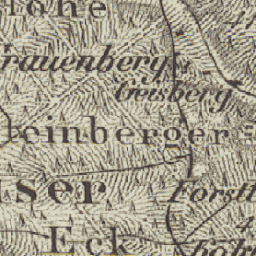 Höhe
Frauenberg
Geisberg
teinberger
ser
Forsth
Eck
höh